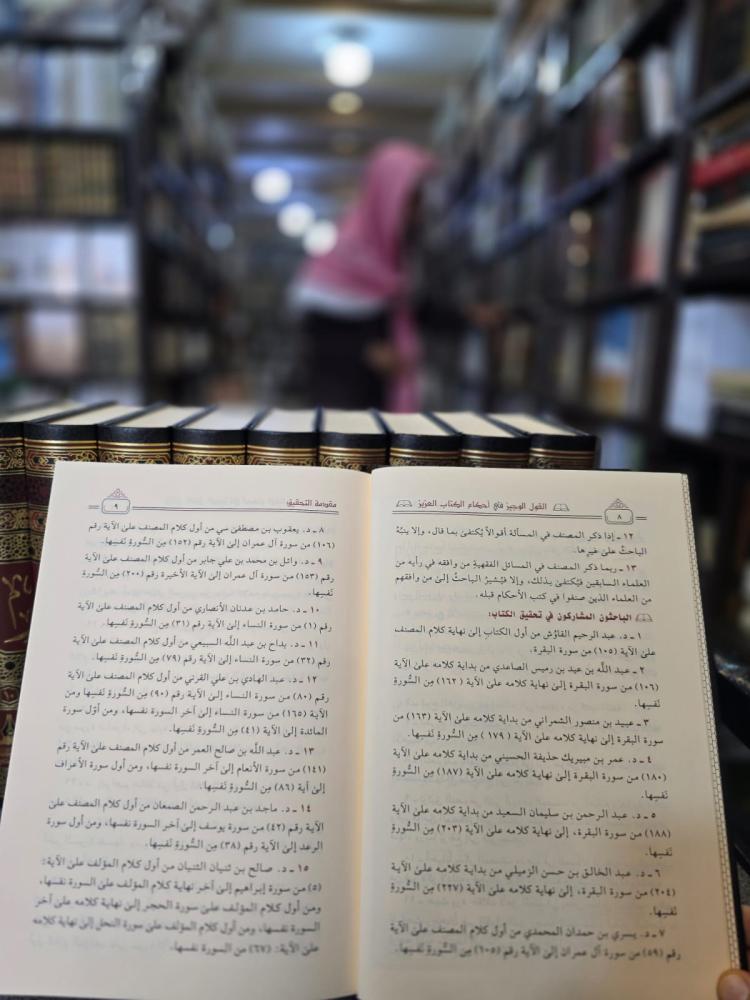 ٨
القول الوجيز في أحكام الكتاب العزيز
١٢ ـ إذا ذكر المصنف في المسألة أقوالاً يُكتفىٰ بما قال، وإلا ينبّه
الباحثُ علىٰ غيرها.
١٣ ـ ربما ذكر المصنف في المسائل الفقهية من وافقه في رأيه من
العلماء السابقين فيُكتفىٰ بذلك، وإلا فيُشيرُ الباحثُ إلىٰ من وافقهم
من العلماء الذين صنفوا في كتب الأحكام قبله.
الباحثون المشاركون في تحقيق الكتاب:
١ ـ د. عبد الرحيم القاؤش من أول الكتاب إلىٰ نهاية كلام المصنف
علىٰ الآية (١٠٥) من سورة البقرة.
٢ ـ عبد الله بن عيد بن رميس الصاعدي من بداية كلامه علىٰ الآية
(١٠٦) من سورة البقرة إلىٰ نهاية كلامه علىٰ الآية (١٦٢) مِن السُّورةِ
نَفسِها.
٣ ـ عبيد بن منصور الشمراني من بداية كلامه علىٰ الآية (١٦٣) من
سورة البقرة إلىٰ نهاية كلامه علىٰ الآية (١٧٩) مِن السُّورةِ نَفسِها.
٤ ـ د. عمر بن مبيريك حذيفة الحسيني من بداية كلامه علىٰ الآية
(١٨٠) من سورة البقرة إلىٰ نهاية كلامه علىٰ الآية (١٨٧) مِن السُّورةِ
نَفسِها.
٥ ـ د. عبد الرحمن بن سليمان السعيد من بداية كلامه علىٰ الآية
(١٨٨) من سورة البقرة، إلىٰ نهاية كلامه علىٰ الآية (٢٠٣) مِن السُّورةِ
نَفسِها.
٦ ـ د. عبد الخالق بن حسن الزميلي من بداية كلامه علىٰ الآية
(٢٠٤) من سورة البقرة، إلىٰ نهاية كلامه علىٰ الآية (٢٢٧) مِن السُّورةِ
نَفسِها.
٧ ـ د. يسري بن حمدان المحمدي من أول كلام المصنف علىٰ الآية
رقم (٥٩) من سورة آل عمران إلىٰ الآية رقم (١٠٥) مِن السُّورةِ نَفسِها.
مقدمة التحقيق
٩
٨ ـ د. يعقوب بن مصطفىٰ سي من أول كلام المصنف علىٰ الآية رقم
(١٠٦) من سورة آل عمران إلىٰ الآية رقم (١٥٢) مِن السُّورةِ نَفسِها.
٩ ـ د. وائل بن محمد بن علي جابر من أول كلام المصنف علىٰ الآية رقم
(١٥٣) من سورة آل عمران إلىٰ الآية الأخيرة رقم (٢٠٠) مِن السُّورةِ
نَفسِها.
١٠ ـ د. حامد بن عدنان الأنصاري من أول كلام المصنف علىٰ الآية
رقم (١) من سورة النساء إلىٰ الآية رقم (٣١) مِن السُّورةِ نَفسِها.
١١ ـ د. بداح بن عبد الله السبيعي من أول كلام المصنف علىٰ الآية
رقم (٣٢) من سورة النساء إلىٰ الآية رقم (٧٩) مِن السُّورةِ نَفسِها.
١٢ ـ د. عبد الهادي بن علي القرني من أول كلام المصنف علىٰ الآية
رقم (٨٠) من سورة النساء إلىٰ الآية رقم (٩٠) مِن السُّورةِ نَفسِها ومن
الآية (١٦٥) من سورة النساء إلىٰ آخر السورة نفسها، ومن أوّل سورة
المائدة إلىٰ الآية (٤١) مِن السُّورةِ نَفسِها.
١٣ ـ د. عبد الله بن صالح العمر من أول كلام المصنف علىٰ الآية رقم
(١٤١) من سورة الأنعام إلىٰ آخر السورة نفسها، ومن أول سورة الأعراف
إلىٰ آية (٨٦) مِن السُّورةِ نَفسِها.
١٤ ـ د. ماجد بن عبد الرحمن الصمعان من أول كلام المصنف علىٰ
الآية رقم (٤٢) من سورة يوسف إلىٰ آخر السورة نفسها، ومن أول سورة
الرعد إلىٰ الآية رقم (٣٨) مِن السُّورةِ نَفسِها.
١٥ ـ د. صالح بن ثنيان الثنيان من أول كلام المؤلف علىٰ الآية:
(٥) من سورة إبراهيم إلىٰ آخر نهاية كلام المؤلف علىٰ السورة نفسها،
ومن أول كلام المؤلف علىٰ سورة الحجر إلىٰ نهاية كلامه علىٰ آخر
السورة نفسها، ومن أول كلام المؤلف علىٰ سورة النحل إلىٰ نهاية كلامه
علىٰ الآية: (٦٧) من السورة نفسها.